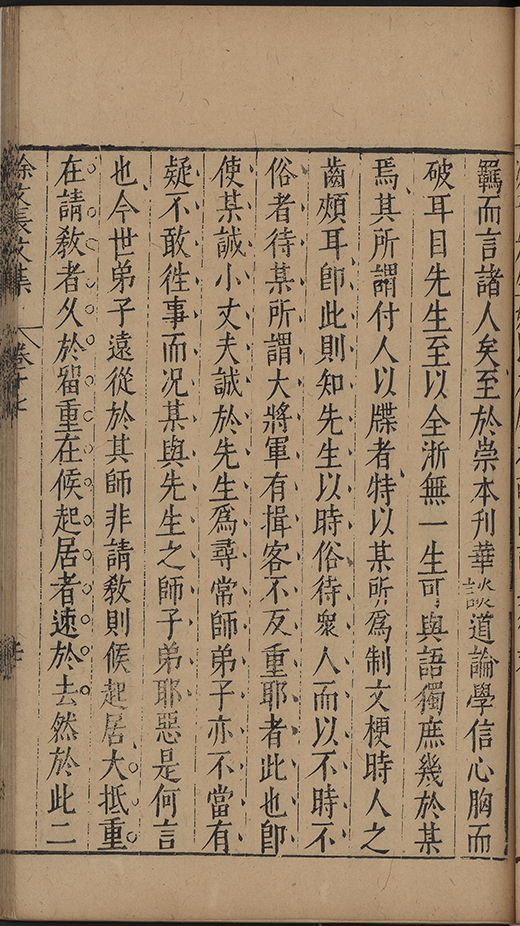 羈而言諸人矣至於崇本刋華談道論學信心胸而
破耳目先生至以全浙無一生可與語獨庶幾於某
焉其所謂付人以牒者特以某所爲制文梗時人之
齒頰耳卽此則知先生以時俗待衆人而以不時不
俗者待某所謂大將軍有揖客不反重耶者此也卽
使某誠小丈夫誠於先生爲尋常師弟子亦不當有
疑不敢徃事而况某與先生之師子弟耶惡是何言
也今世弟子遠從於其師非請敎則候起居大抵重
在請敎者久於畱重在候起居者速於去然於此二
徐文長文集 卷十七